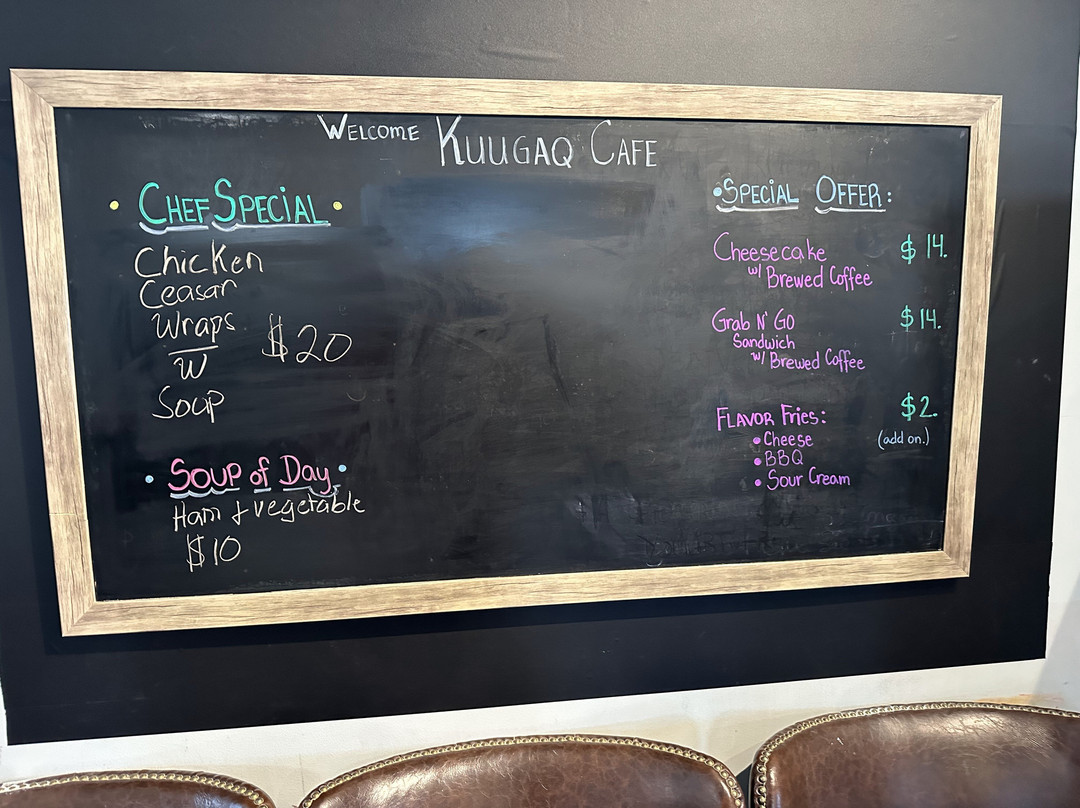 WELCOME KUUGAQ CAFE
• CHEF SPECIAL •
Chicken
Ceasar
Wraps
W
Soup
$20
• SOUP of Day •
Ham + vegetable
$10
• SPECIAL OFFER:
Cheesecake $14.
w/ Brewed Coffee
Grab N' GO $14.
Sandwich
w/ Brewed Coffee
FLAVOR Fries: $2.
• Cheese (add on.)
• BBQ
• Sour Cream